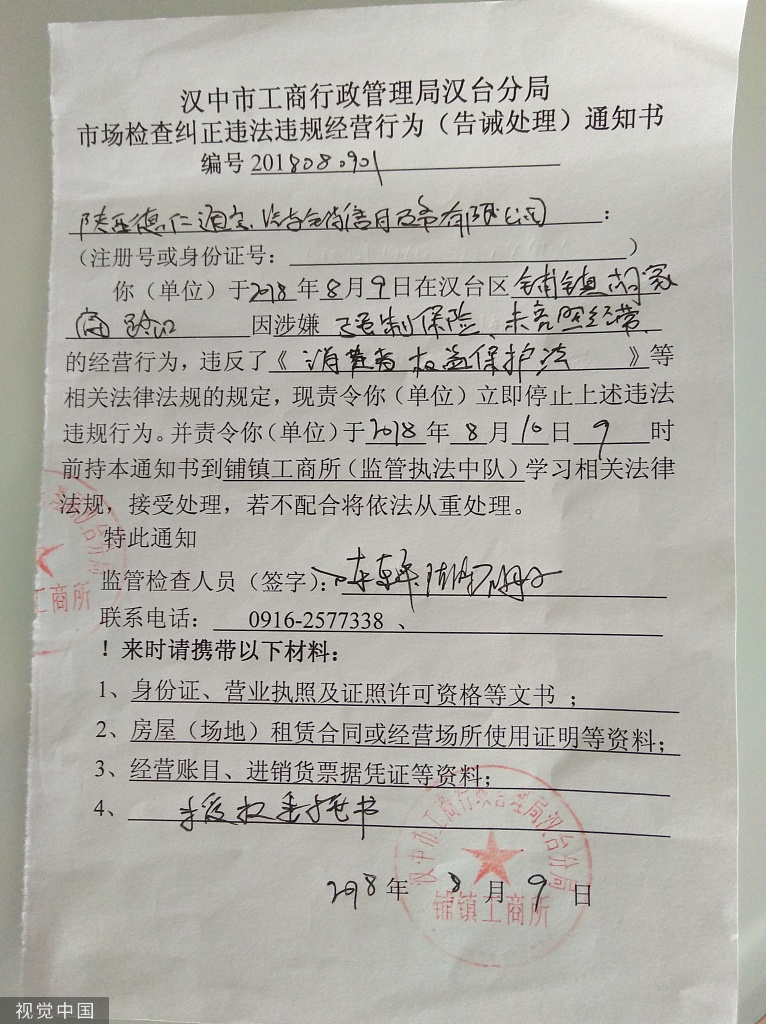 汉中市工商行政管理局汉台分局
市场检查纠正违法违规经营行为（告诫处理）通知书
编号 201808.0901
陕西德仁通宝汽车销售服务有限公司：
（注册号或身份证号：）
你（单位）于2018年8月9日在汉台区铺镇胡家
路口 因涉嫌 强制保险、未亮照经营
的经营行为，违反了《消费者权益保护法》等
相关法律法规的规定，现责令你（单位）立即停止上述违法
违规行为。并责令你（单位）于2018年8月10日9时
前持本通知书到铺镇工商所（监管执法中队）学习相关法律
法规，接受处理，若不配合将依法从重处理。
特此通知
监管检查人员（签字）：
联系电话： 0916-2577338 、
！来时请携带以下材料：
1、身份证、营业执照及证照许可资格等文书 ；
2、房屋（场地）租赁合同或经营场所使用证明等资料；
3、经营账目、进销货票据凭证等资料；
4、授权委托书
2018年8月9日
汉中市工商行政管理局汉台分局
铺镇工商所
台分局
工商所
视觉中国